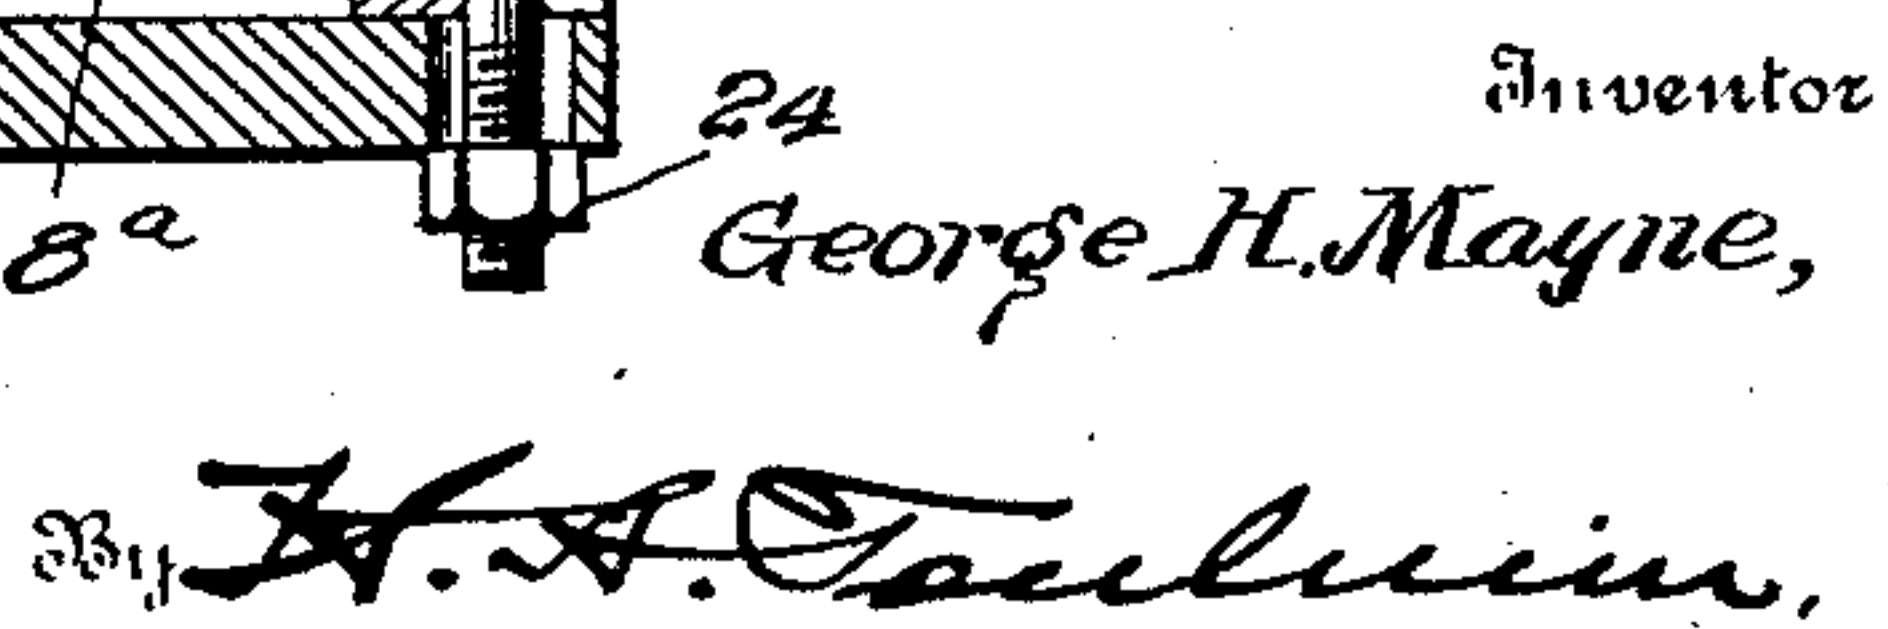 24
Inventor
8a
George H. Mayne,
By H. A. Toulmin,